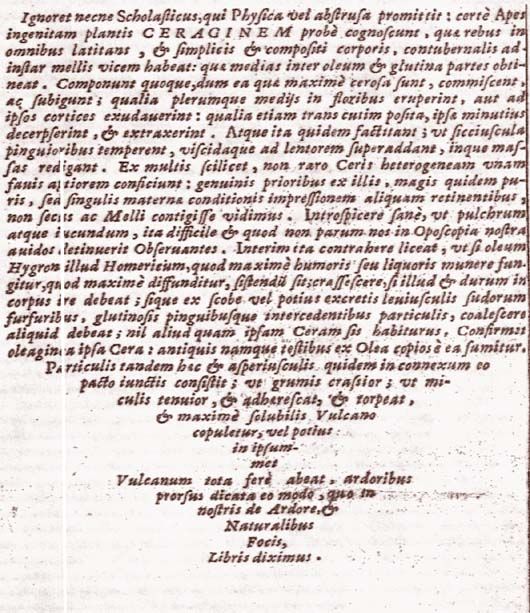 Ignoret necne Scholasticus, qui Physica vel abstrusa promittit: certè Apes
ingenitam plantis CERAGINEM probè cognoscunt, quæ rebus in
omnibus latitans, & simplicis & compositi corporis, contubernalis ad
instar mellis vicem habeat: quæ medias inter oleum & glutina partes obti-
neat. Componunt quoque, dum ea quæ maximè cerosa sunt, commiscent,
ac subigunt; qualia plerumque medijs in floribus eruperint, aut ad
ipsos cortices exudauerint: qualia etiam trans cutim posita, ipsæ minutius
decerpserint, & extraxerint. Atque ita quidem factitant; vt sicciuscula
pinguioribus temperent, viscidaque ad lentorem superaddant, inque mas-
sas redigant. Ex multis scilicet, non raro Ceris heterogeneam vnam
fauis aptiorem conficiunt: genuinis prioribus ex illis, magis quidem pu-
ris, sed singulis maternæ conditionis impressionem aliquam retinentibus,
non secus ac Melli contigisse vidimus. Introspicere sanè, vt pulchrum
atque iucundum, ita difficile & quod non parum nos in Oposcopia nostra
auidos detinuerit Obseruantes. Interim ita contrahere liceat, vt si oleum
Hygron illud Homericum, quod maximè humoris seu liquoris munere fun-
gitur, quod maximè diffunditur, sistendū sit; crassescere, si illud & durum in
corpus ire debeat; sique ex scobe vel potius excretis leuiusculis sudorum
furfuribus, glutinosis pinguibusque intercedentibus particulis, coalescere
aliquid debeat; nil aliud quam ipsam Ceram sis habiturus. Confirmat
oleagina ipsa Cera: antiquis namque testibus ex Olea copiosè ea sumitur.
Particulis tandem hæc & asperiusculis quidem in connexum eo
pacto iunctis consistit; vt grumis crassior; vt mi-
culis tenuior, & adhærescat, & torpeat,
& maximè solubilis Vulcano
copuletur, vel potius
in ipsum-
met
Vulcanum tota ferè abeat, ardoribus
prorsus dicata eo modo, quo in
nostris de Ardore, &
Naturalibus
Focis,
Libris diximus.